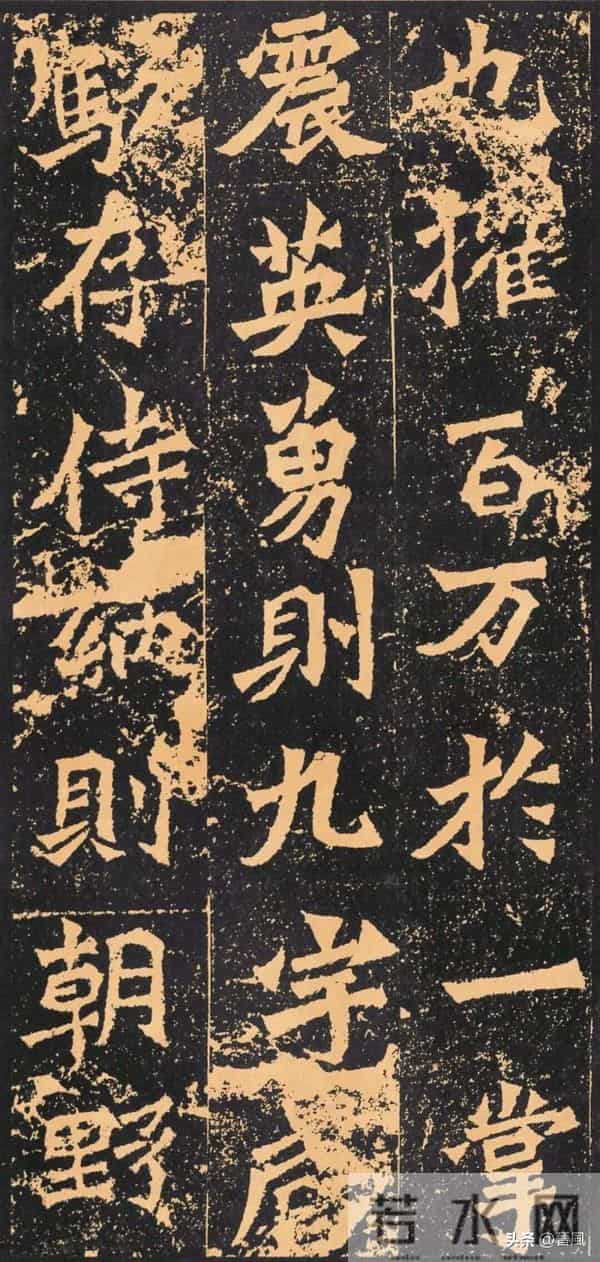 也摧百万於一掌
震英勇則九宇咸
駭存侍納則朝野
若水网
头条 @書風